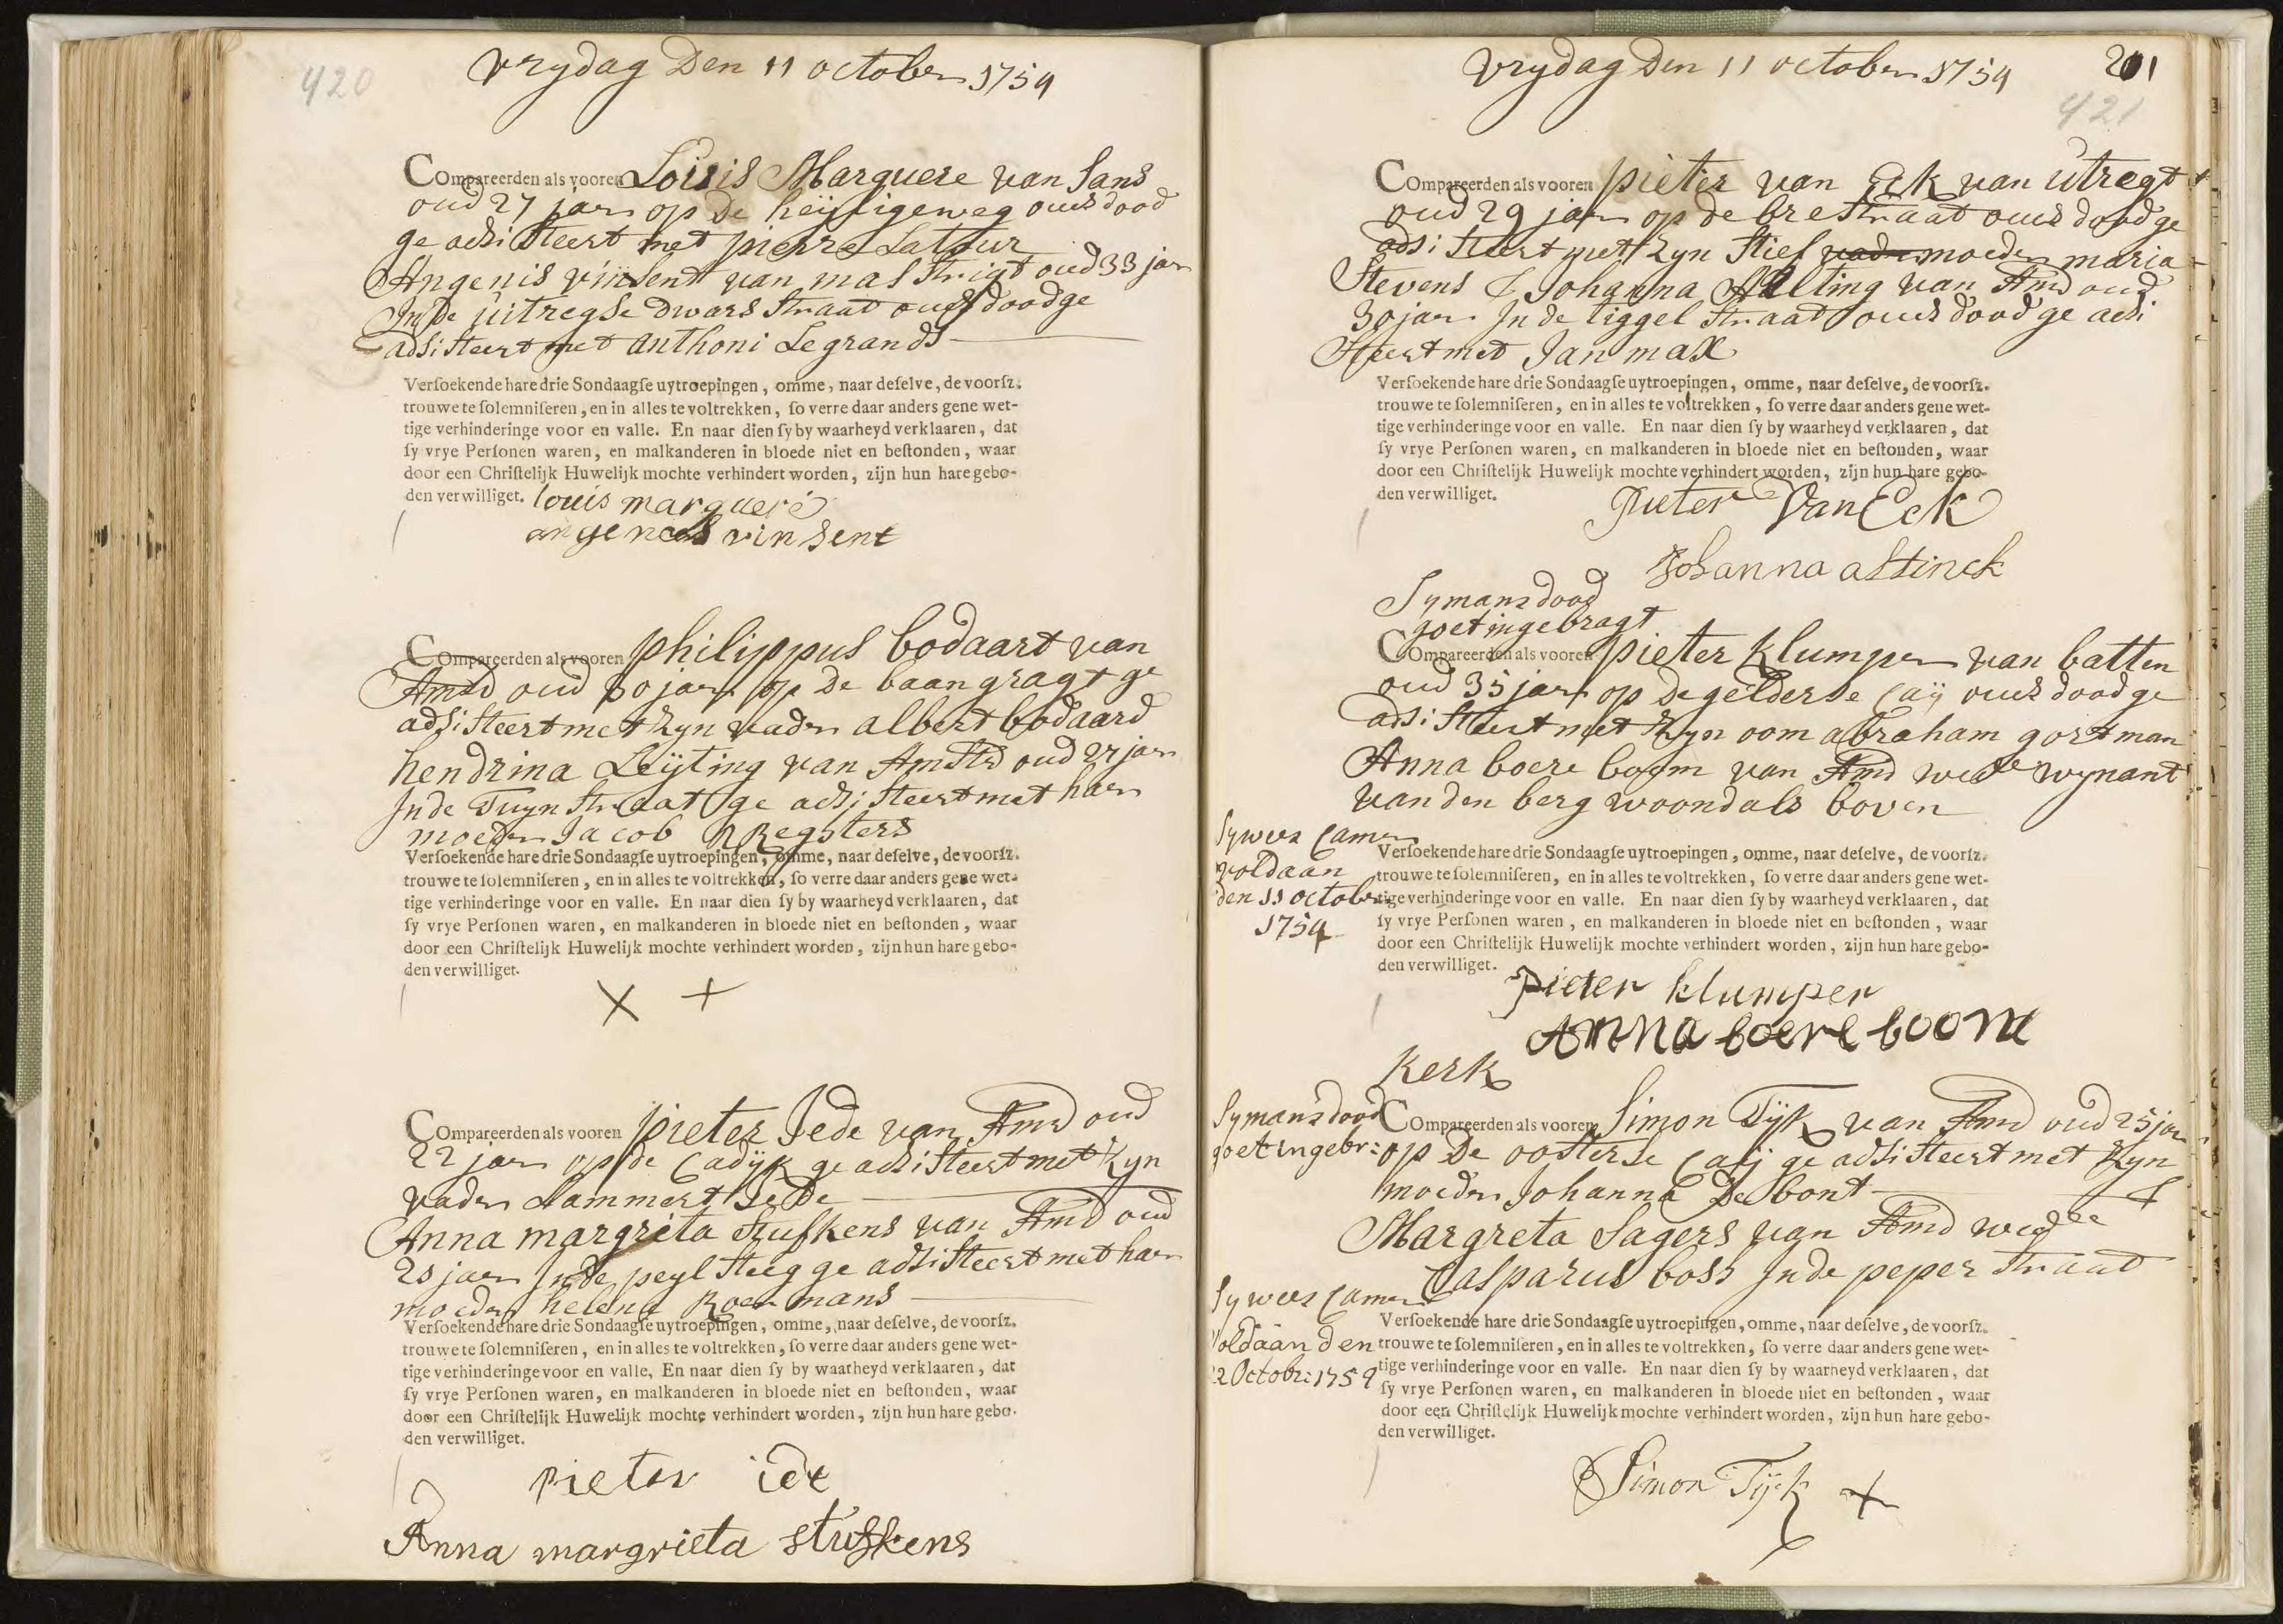 420
vrydag Den 11 october 1754
Compareerden als vooren Louis Marquere van Sans
oud 27 jaar op De heyligeweg ouds dood
ge adsisteert met pierre Latour
Angenis vinsent van mastrigt oud 33 jaar
In de uitregse Dwars straat ouds dood ge
adsisteert met anthoni Legrands
Versoekende hare drie Sondaagse uytroepingen, omme, naar deselve, de voorsz.
trouwe te solemniseren, en in alles te voltrekken, so verre daar anders gene wet-
tige verhinderinge voor en valle. En naar dien sy by waarheyd verklaaren, dat
sy vrye Personen waren, en malkanderen in bloede niet en bestonden, waar
door een Christelijk Huwelijk mochte verhindert worden, zijn hun hare gebo-
den verwilliget.
louis marqueré
angenees vinsent
Compareerden als vooren philippus bodaart van
Amsd oud 30 jaar op De baangragt ge
adsisteert met zyn vader albert bodaard
hendrina Leyting van Amstd oud 27 jaar
In de Tuyn straat ge adsisteert met haer
moeder Jacob Regsters
Versoekende hare drie Sondaagse uytroepingen, omme, naar deselve, de voorsz.
trouwe te solemniseren, en in alles te voltrekken, so verre daar anders gene wet-
tige verhinderinge voor en valle. En naar dien sy by waarheyd verklaaren, dat
sy vrye Personen waren, en malkanderen in bloede niet en bestonden, waar
door een Christelijk Huwelijk mochte verhindert worden, zijn hun hare gebo-
den verwilliget.
X +
Compareerden als vooren pieter Iede van Amsd oud
22 jaar op de Cadyk ge adsisteert met zyn
vader Lammert Iede
Anna margrita stufkens van Amd oud
20 jaar In de peyl steeg ge adsisteert met haer
moeder helena Roermans
Versoekende hare drie Sondaagse uytroepingen, omme, naar deselve, de voorsz.
trouwe te solemniseren, en in alles te voltrekken, so verre daar anders gene wet-
tige verhinderinge voor en valle, En naar dien sy by waarheyd verklaaren, dat
sy vrye Personen waren, en malkanderen in bloede niet en bestonden, waar
door een Christelijk Huwelijk mochte verhindert worden, zijn hun hare gebo-
den verwilliget.
pieter ide
Anna margrieta stufkens
vrydag Den 11 october 1754
201
421
Compareerden als vooren pieter van Eck van utregt
oud 29 jaar op de bre straat ouds dood ge
adsisteert met zyn stief moeder maria
Stevens & Johanna Alting van Amd oud
30 jaar In de tiggel straat ouds dood ge adsi
steert met Jan max
Versoekende hare drie Sondaagse uytroepingen, omme, naar deselve, de voorsz.
trouwe te solemniseren, en in alles te voltrekken, so verre daar anders gene wet-
tige verhinderinge voor en valle. En naar dien sy by waarheyd verklaaren, dat
sy vrye Personen waren, en malkanderen in bloede niet en bestonden, waar
door een Christelijk Huwelijk mochte verhindert worden, zijn hun hare gebo-
den verwilliget.
Pieter Van Eck
Johanna altinck
Symans dood
goet ingebragt
Compareerden als vooren pieter Klumper van batten
oud 35 jaar op de gelderse Caij ouds dood ge
adsisteert met Zyn oom abraham gortman
Anna boere boom van Amd wede wynant
van den berg woond als boven
Sy wees Camer
voldaan
den 11 october
1754
Versoekende hare drie Sondaagse uytroepingen, omme, naar deselve, de voorsz.
trouwe te solemniseren, en in alles te voltrekken, so verre daar anders gene wet-
tige verhinderinge voor en valle. En naar dien sy by waarheyd verklaaren, dat
sy vrye Personen waren, en malkanderen in bloede niet en bestonden, waar
door een Christelijk Huwelijk mochte verhindert worden, zijn hun hare gebo-
den verwilliget.
Pieter klumper
Anna boere boom
Kerk
Symans dood
goet ingebr:
Compareerden als vooren Simon Tyk van Amd oud 25 jaar
op De oosterse Caij ge adsisteert met Zyn
moeder Johanna De bont &
Margreta Sagers van Amd wede
Casparus boss In de peper straat
Sy wees Camer
voldaan den
Octobr: 1754
Versoekende hare drie Sondaagse uytroepingen, omme, naar deselve, de voorsz.
trouwe te solemniseren, en in alles te voltrekken, so verre daar anders gene wet-
tige verhinderinge voor en valle. En naar dien sy by waarheyd verklaaren, dat
sy vrye Personen waren, en malkanderen in bloede niet en bestonden, waar
door een Christelijk Huwelijk mochte verhindert worden, zijn hun hare gebo-
den verwilliget.
Simon Tijk +